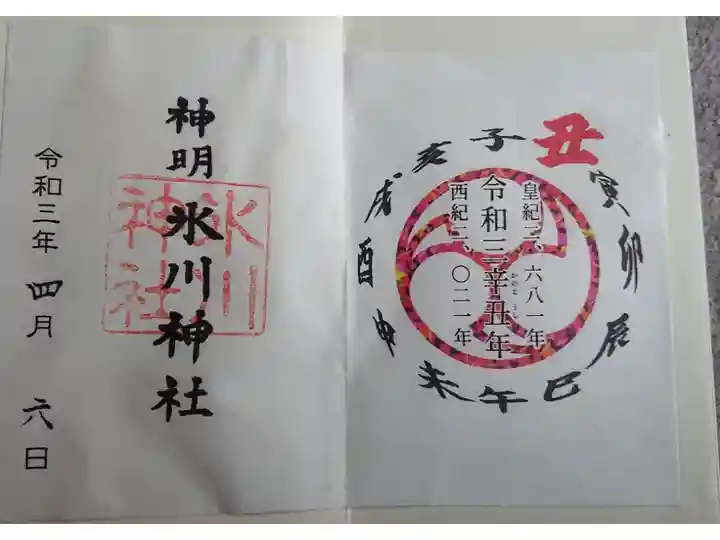 丑
寅
卯
辰
巳
午
未
申
酉
戌
亥
子
皇紀二、六八一年
令和三辛丑年
かのと うし
西紀二、〇二一年
神明
氷川神社
氷川
神社
令和三年 四月 六日